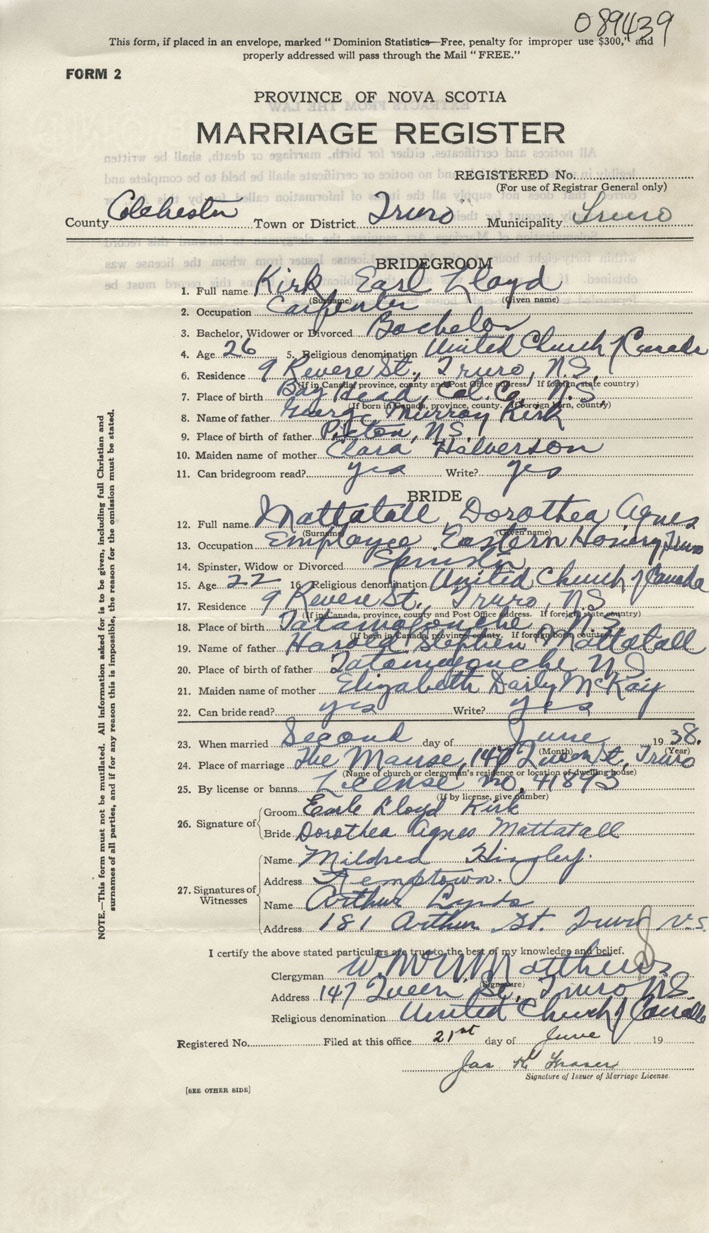 089439
This form, if placed in an envelope, marked "Dominion Statistics—Free, penalty for improper use $300," and
properly addressed will pass through the Mail "FREE."
FORM 2
PROVINCE OF NOVA SCOTIA
MARRIAGE REGISTER
REGISTERED No.
(For use of Registrar General only)
County Colchester Town or District Truro Municipality Truro
BRIDEGROOM
1. Full name Kirk Earl Lloyd
(Surname) (Given name)
2. Occupation Carpenter
3. Bachelor, Widower or Divorced Bachelor
4. Age 26 5. Religious denomination United Church of Canada
6. Residence 9 Revere St., Truro, N.S.
(If in Canada, province, county and Post Office address. If foreign, state country)
7. Place of birth Bay Head, Col. Co., N.S.
(If born in Canada, province, county. If foreign born, country)
8. Name of father George Murray Kirk
9. Place of birth of father Pictou, N.S.
10. Maiden name of mother Clara Halverson
11. Can bridegroom read? yes Write? yes
BRIDE
12. Full name Mattatall Dorothea Agnes
(Surname) (Given name)
13. Occupation Employee Eastern Hosiery Truro
14. Spinster, Widow or Divorced Spinster
15. Age 22 16. Religious denomination United Church of Canada
17. Residence 9 Revere St., Truro NS
(If in Canada, province, county and Post Office address. If foreign, state country)
18. Place of birth Tatamagouche N.S.
(If born in Canada, province, county. If foreign born, country)
19. Name of father Harold Stephen Mattatall
20. Place of birth of father Tatamagouche NS
21. Maiden name of mother Elizabeth Daily McKay
22. Can bride read? yes Write? yes
23. When married Second day of June 1938.
(Month) (Year)
24. Place of marriage The Manse, 147 Queen St, Truro
(Name of church or clergyman's residence or location of dwelling house)
25. By license or banns License no, 41893
(If by license, give number)
26. Signature of
Groom Earle Lloyd Kirk
Bride Dorothea Agnes Mattatall
27. Signatures of Witnesses
Name Mildred
Address Kemptown.
Name Arthur Lynds
Address 181 Arthur St. Truro N.S.
I certify the above stated particulars are true to the best of my knowledge and belief.
Clergyman Matthews
(Signature)
Address 147 Queen St., Truro NS.
Religious denomination United Church of Canada
Registered No. Filed at this office 21st day of June 19
Jas K Fraser
Signature of Issuer of Marriage License.
[SEE OTHER SIDE]
NOTE.—This form must not be mutilated. All information asked for is to be given, including full Christian and
surnames of all parties, and if for any reason this is impossible, the reason for the omission must be stated.